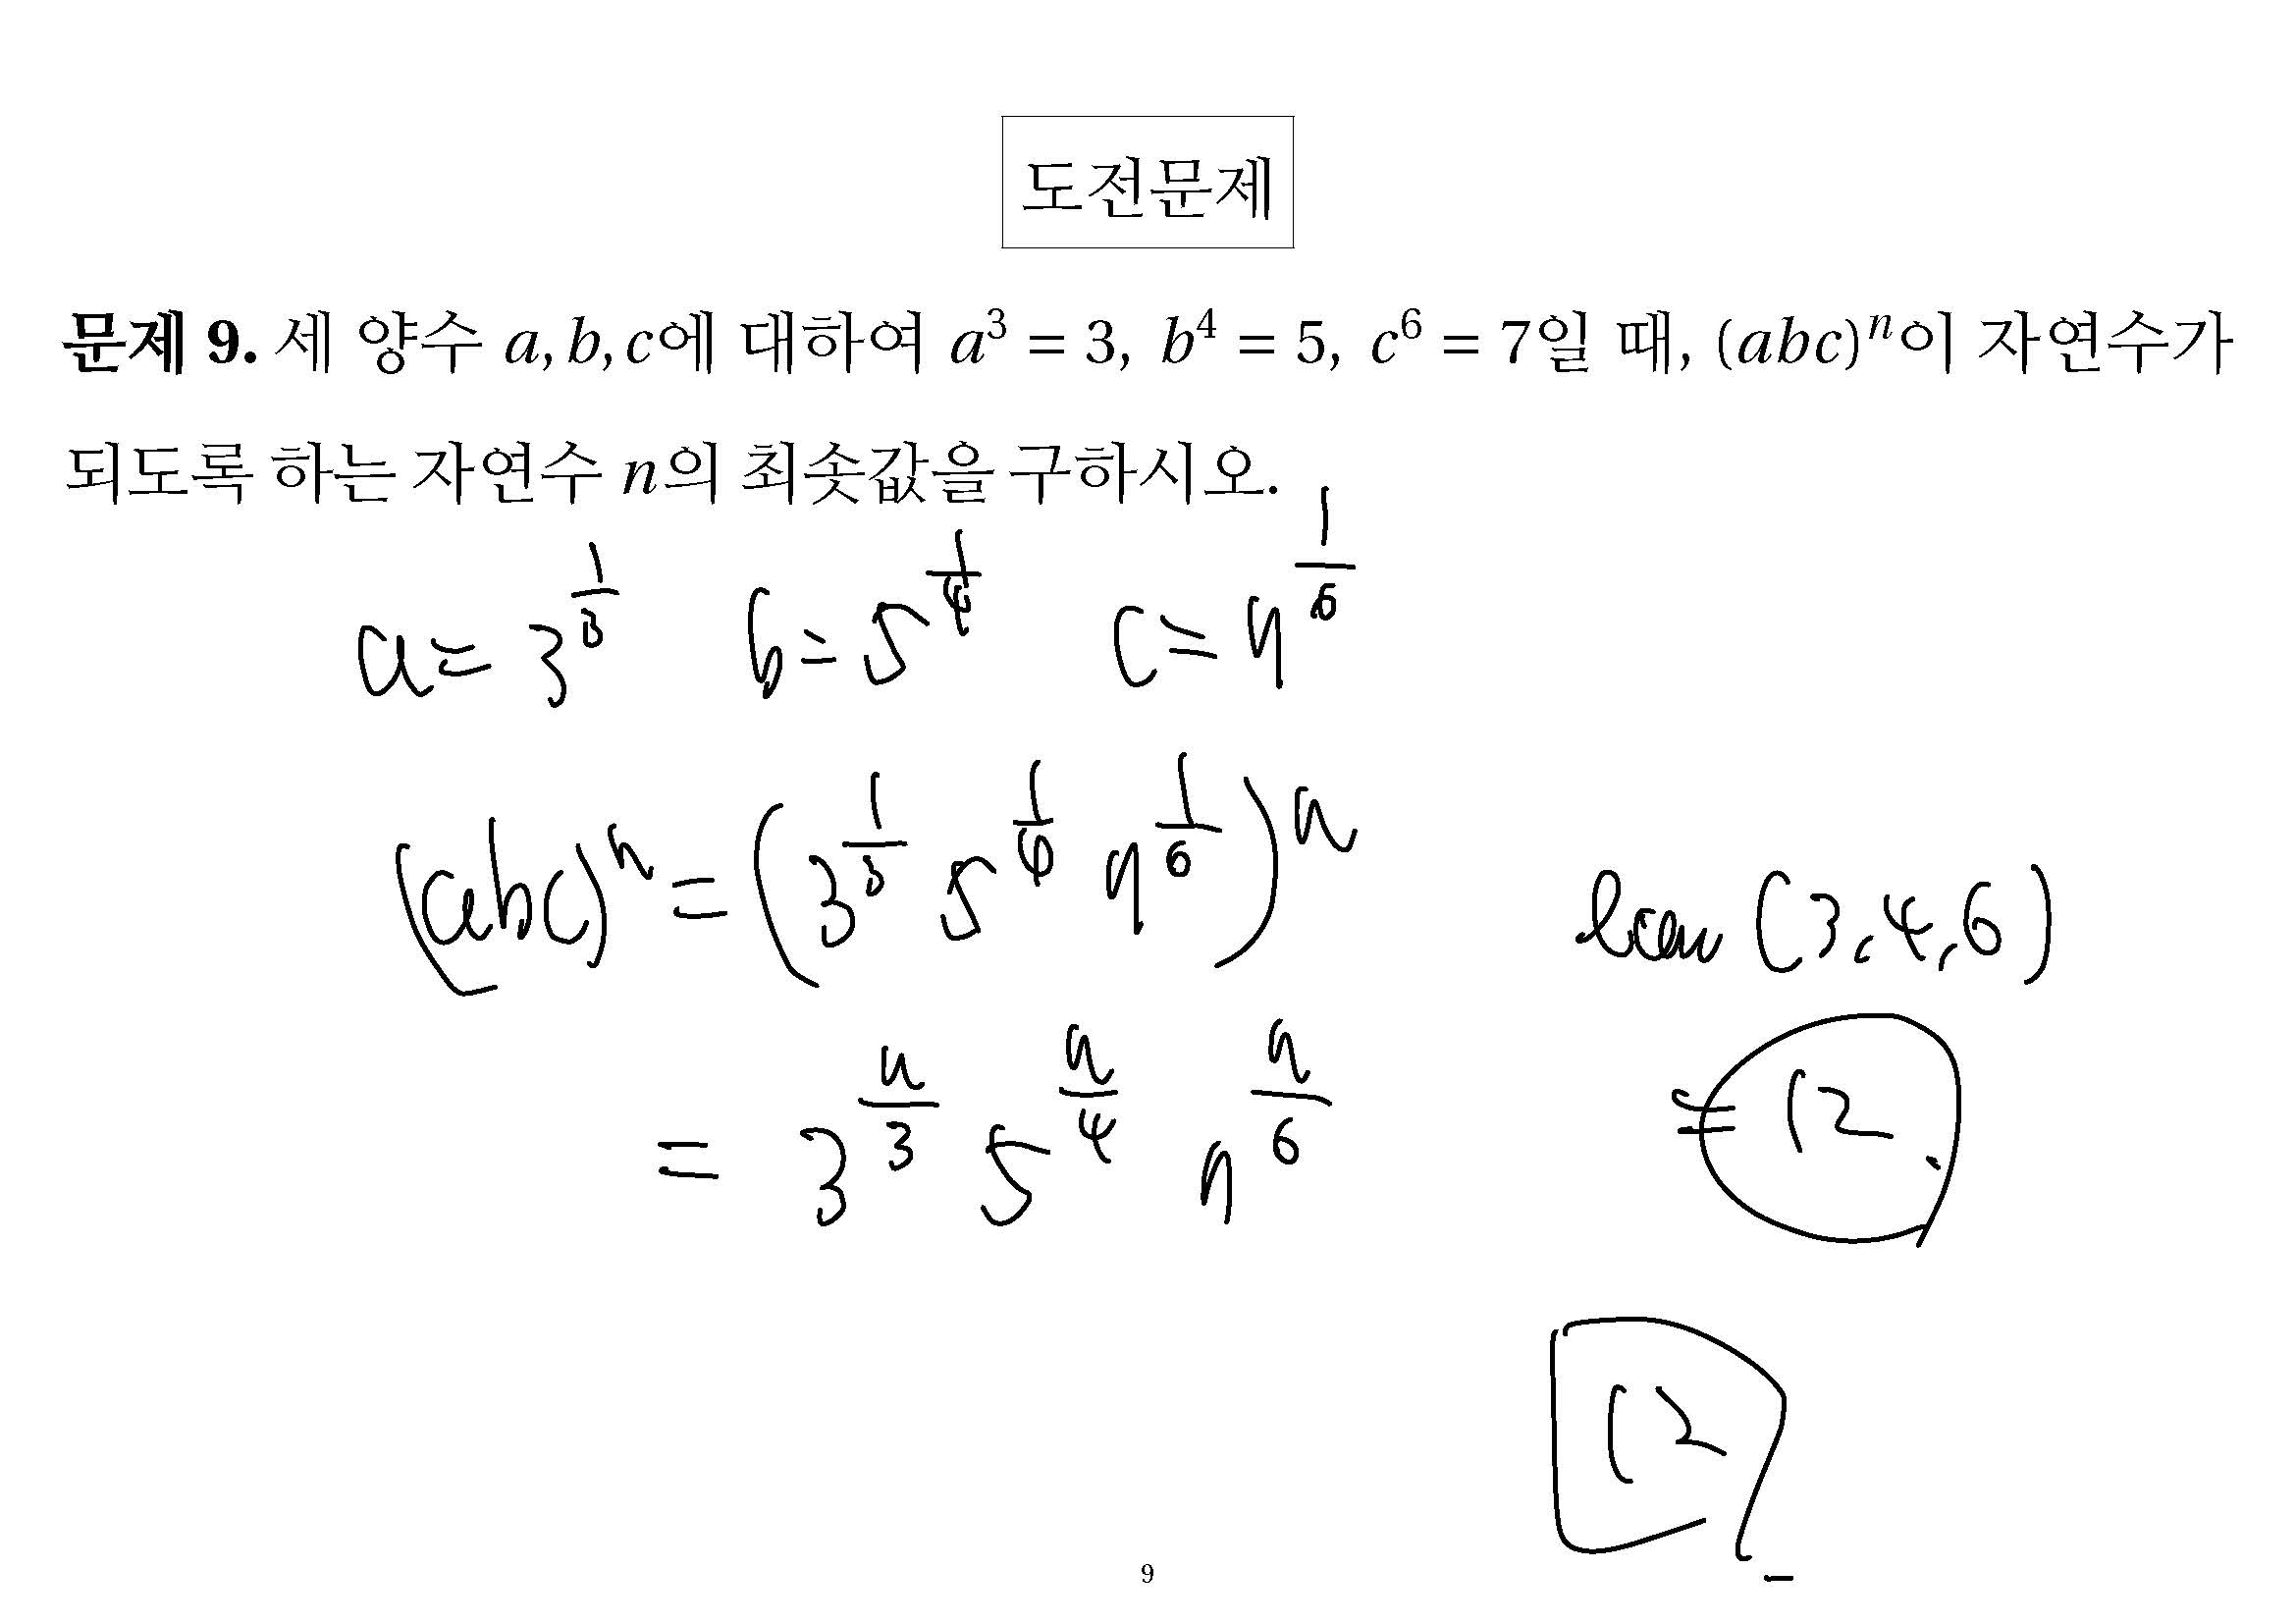 도전문제
문제 9. 세 양수 a, b, c에 대하여 a³ = 3, b⁴ = 5, c⁶ = 7일 때, (abc)ⁿ이 자연수가
되도록 하는 자연수 n의 최솟값을 구하시오.
a = 3^(1/3) b = 5^(1/4) c = 7^(1/6)
(abc)^n = (3^(1/3) 5^(1/4) 7^(1/6))^n
lcm (3, 4, 6)
= 3^(n/3) 5^(n/4) 7^(n/6)
= 12.
12
9